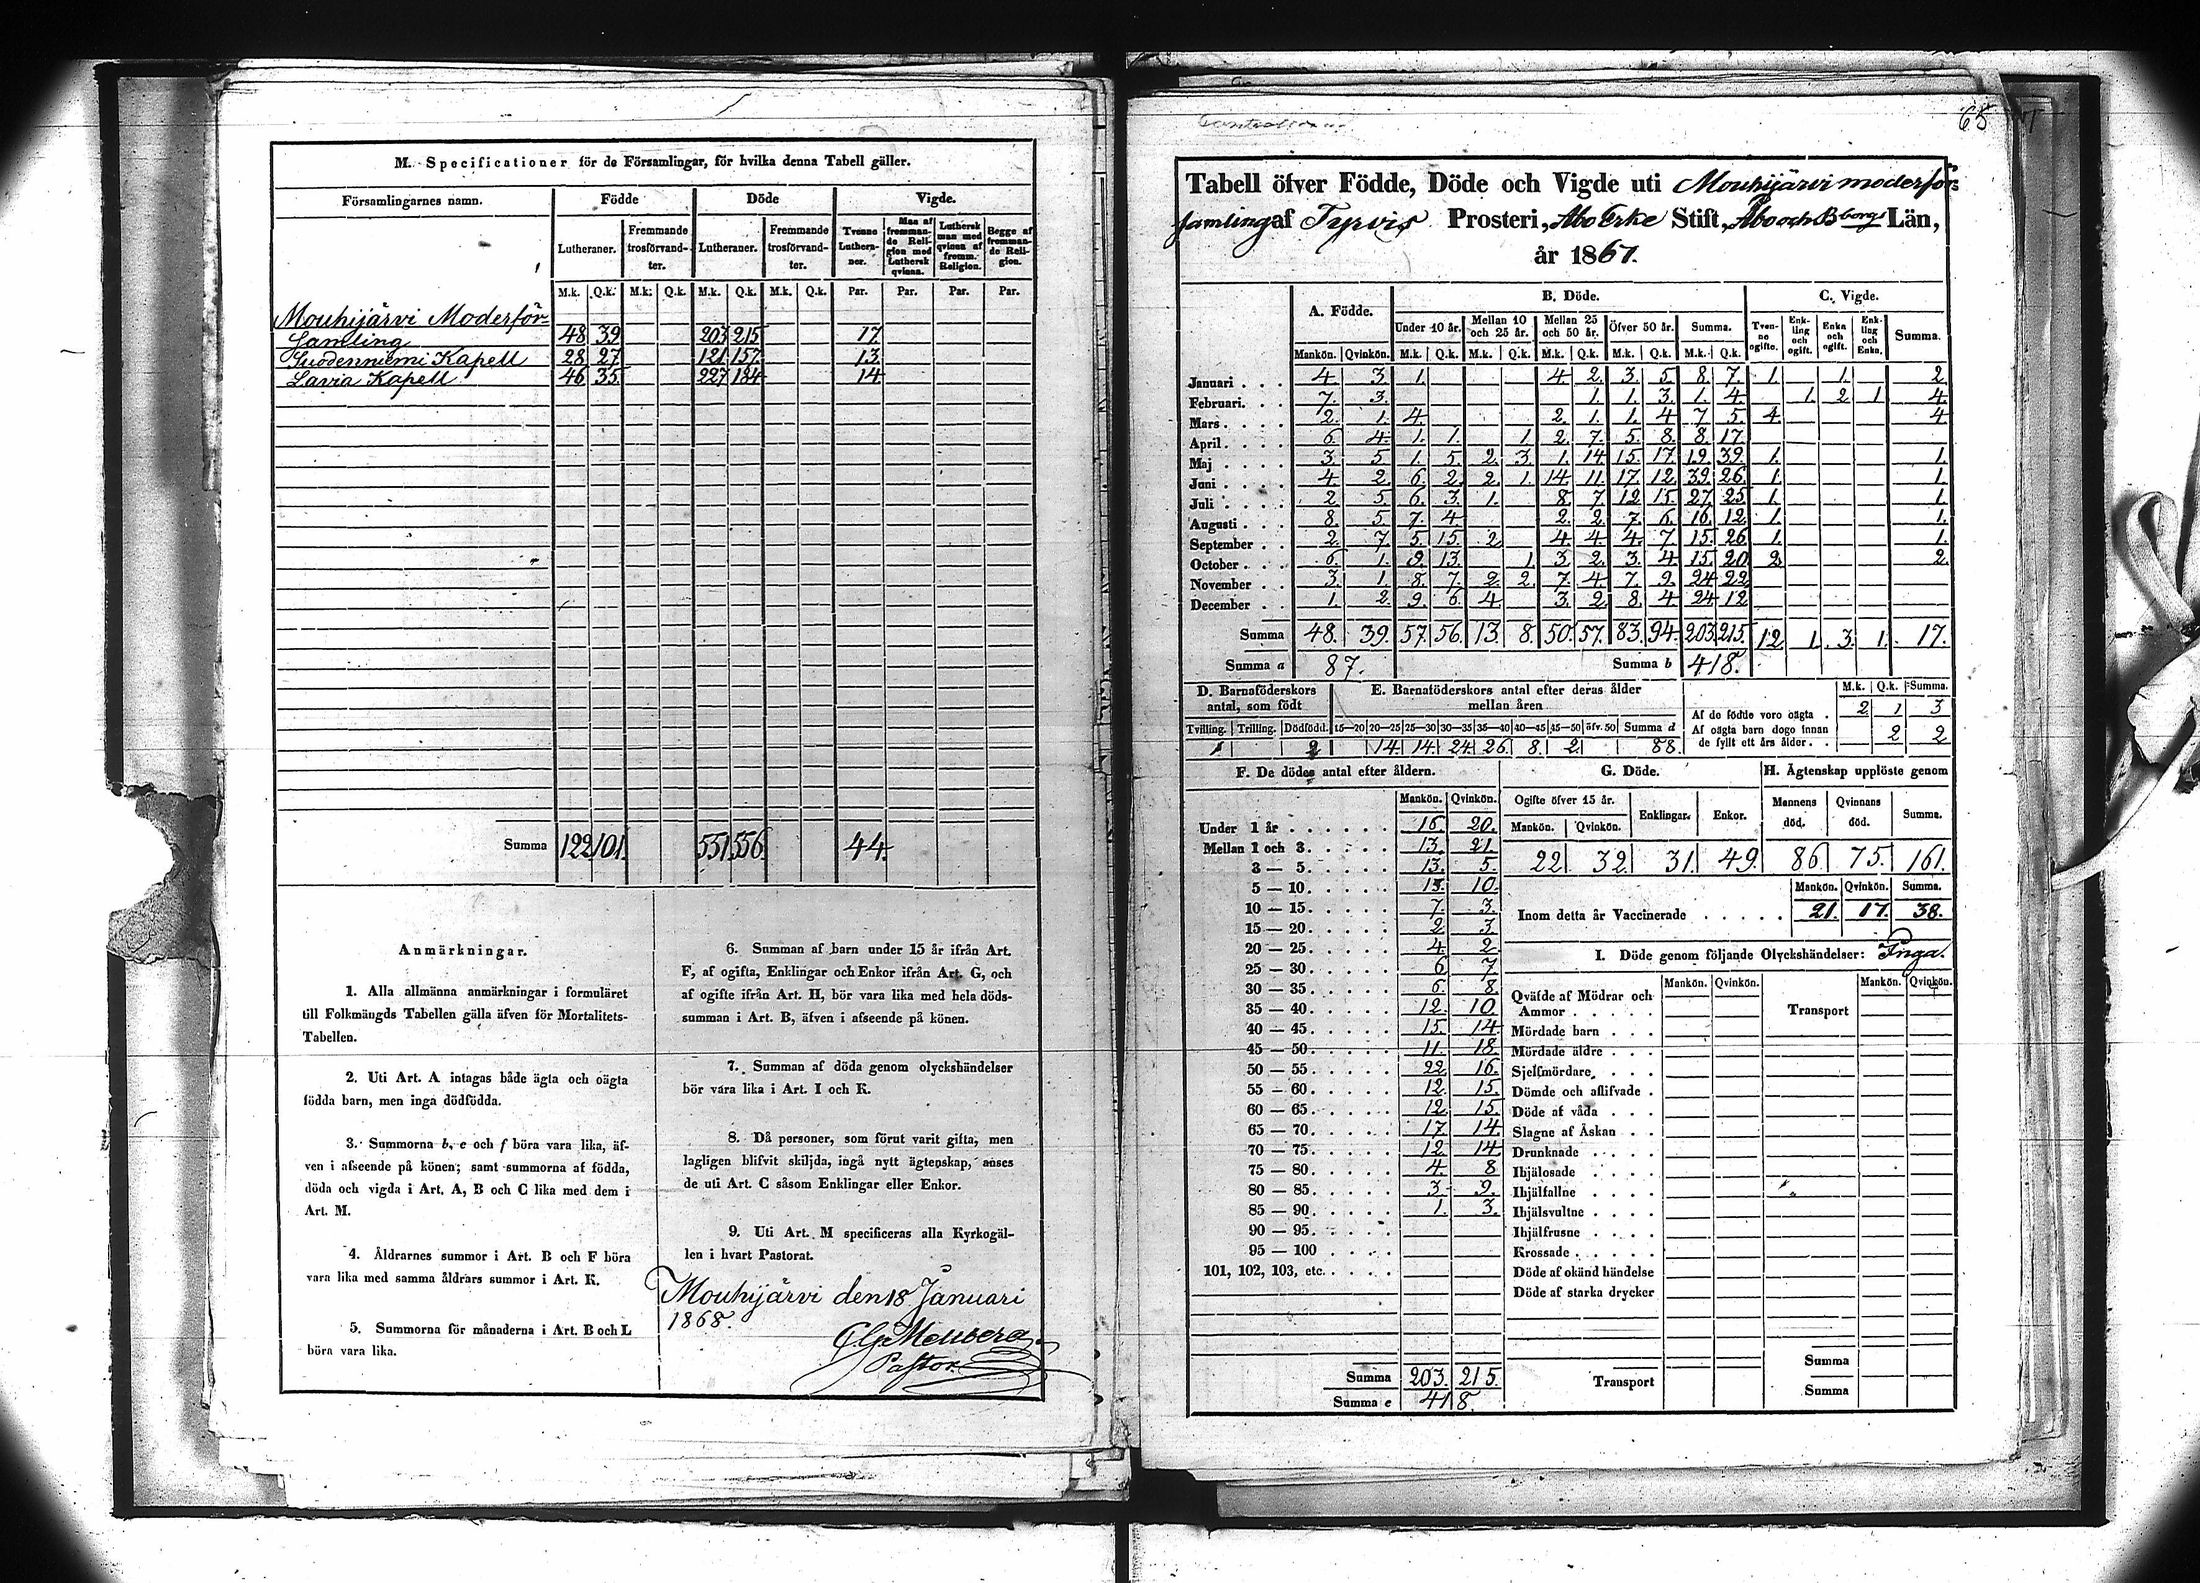 M. Specificationer för de Församlingar, för hvilka denna Tabell gäller.
Församlingarnes namn. Födde Döde Vigde.
Lutheraner. Fremmande trosförvandter. Lutheraner. Fremmande trosförvandter. Tvenne Lutheraner. Man af fremmande Religion med Luthersk qvinna. Luthersk man med qvinna af fremm. Religion. Begge af fremmande Religion.
M.k. Q.k. M.k. Q.k. M.k. Q.k. M.k. Q.k. Par. Par. Par. Par.
Mouhijärvi Moderför-
samling 48 39 203 215 17
Suodenniemi Kapell 28 27 121 157 13
Lavia Kapell 46 35 227 184 14
Summa 122 101 551 556 44
Anmärkningar.
1. Alla allmänna anmärkningar i formuläret
till Folkmängds Tabellen gälla äfven för Mortalitets-
Tabellen.
2. Uti Art. A intagas både ägta och oägta
födda barn, men inga dödfödda.
3. Summorna b, e och f böra vara lika, äf-
ven i afseende på könen; samt summorna af födda,
döda och vigda i Art. A, B och C lika med dem i
Art. M.
4. Åldrarnes summor i Art. B och F böra
vara lika med samma åldrars summor i Art. K.
5. Summorna för månaderna i Art. B och L
böra vara lika.
6. Summan af barn under 15 år ifrån Art.
F, af ogifta, Enklingar och Enkor ifrån Art. G, och
af ogifte ifrån Art. H, bör vara lika med hela döds-
summan i Art. B, äfven i afseende på könen.
7. Summan af döda genom olyckshändelser
bör vara lika i Art. I och K.
8. Då personer, som förut varit gifta, men
lagligen blifvit skiljda, ingå nytt ägtenskap, anses
de uti Art. C såsom Enklingar eller Enkor.
9. Uti Art. M specificeras alla Kyrkogäl-
len i hvart Pastorat.
Mouhijärvi den 18 Januari
1868.
Pastor
65
Tabell öfver Födde, Döde och Vigde uti Mouhijärvi moderför-
samling af Tyrvis Prosteri, Åbo Erke Stift, Åbo och Bborgs Län,
år 1867.
A. Födde. B. Döde. C. Vigde.
Under 10 år. Mellan 10 och 25 år. Mellan 25 och 50 år. Öfver 50 år. Summa. Tvenne ogifte. Enkling och ogift. Enka och ogift. Enkling och Enka. Summa.
Mankön. Qvinkön. M.k. Q.k. M.k. Q.k. M.k. Q.k. M.k. Q.k. M.k. Q.k.
Januari 4. 3. 1. 4. 2. 3. 5. 8. 7. 1. 1. 2.
Februari. 7. 3. 1. 1. 3. 1. 4. 1. 2. 1 4.
Mars 2. 1. 4. 2. 1. 1. 4. 7. 5. 4. 4.
April 6. 4. 1. 1. 1. 2. 7. 5. 8. 8. 17.
Maj 3. 5. 1. 5. 2. 3. 1. 14. 15. 17. 19. 39. 1. 1.
Juni 4. 2. 6. 2. 2. 1. 14. 11. 17. 12. 39. 26. 1. 1.
Juli 2. 5. 6. 3. 1. 8. 7. 12. 15. 27. 25. 1. 1.
Augusti 8. 5. 7. 4. 2. 2. 7. 6. 16. 12. 1. 1.
September 2. 7. 5. 15. 2. 4. 4. 4. 7. 15. 26. 1. 1.
October 6. 1. 9. 13. 1. 3. 2. 3. 4. 15. 20. 2. 2.
November 3. 1. 8. 7. 2. 2. 7. 4. 7. 9. 24. 22.
December 1. 2. 9. 6. 4. 3. 2. 8. 4. 24. 12.
Summa 48. 39. 57. 56. 13. 8. 50. 57. 83. 94. 203. 215. 12. 1. 3. 1. 17.
Summa a 87. Summa b 418.
D. Barnaföderskors antal, som födt
Tvilling. Trilling. Dödfödd.
1 2
E. Barnaföderskors antal efter deras ålder mellan åren
15—20 20—25 25—30 30—35 35—40 40—45 45—50 öfv. 50 Summa d
14. 14. 24. 26. 8. 2. 88.
M.k. Q.k. Summa.
Af de födde voro oägta 2 1 3
Af oägta barn dogo innan
de fyllt ett års ålder 2 2
F. De dödes antal efter åldern.
Mankön. Qvinkön.
Under 1 år 16. 20.
Mellan 1 och 3. 13. 21.
3 — 5. 13. 5.
5 — 10. 15. 10.
10 — 15. 7. 3.
15 — 20. 2 3.
20 — 25. 4. 2
25 — 30. 6 7
30 — 35. 6. 8.
35 — 40. 12. 10.
40 — 45. 15. 14
45 — 50. 11. 18.
50 — 55. 22 16.
55 — 60. 12. 15.
60 — 65. 12 15.
65 — 70. 17. 14.
70 — 75. 12 14
75 — 80. 4. 8
80 — 85. 3. 9.
85 — 90. 1. 3.
90 — 95.
95 — 100
101, 102, 103, etc.
Summa 203. 215.
Summa e 418.
G. Döde.
Ogifte öfver 15 år. Enklingar. Enkor.
Mankön. Qvinkön.
22 32 31 49.
H. Ägtenskap upplöste genom
Mannens död. Qvinnans död. Summa.
86 75. 161.
Mankön. Qvinkön. Summa.
Inom detta år Vaccinerade 21. 17. 38.
I. Döde genom följande Olyckshändelser: Inga.
Mankön. Qvinkön. Mankön. Qvinkön.
Qväfde af Mödrar och
Ammor Transport
Mördade barn
Mördade äldre
Sjelfmördare
Dömde och aflifvade
Döde af våda
Slagne af Åskan
Drunknade
Ihjälosade
Ihjälfallne
Ihjälsvultne
Ihjälfrusne
Krossade
Döde af okänd händelse
Döde af starka drycker
Summa
Transport Summa